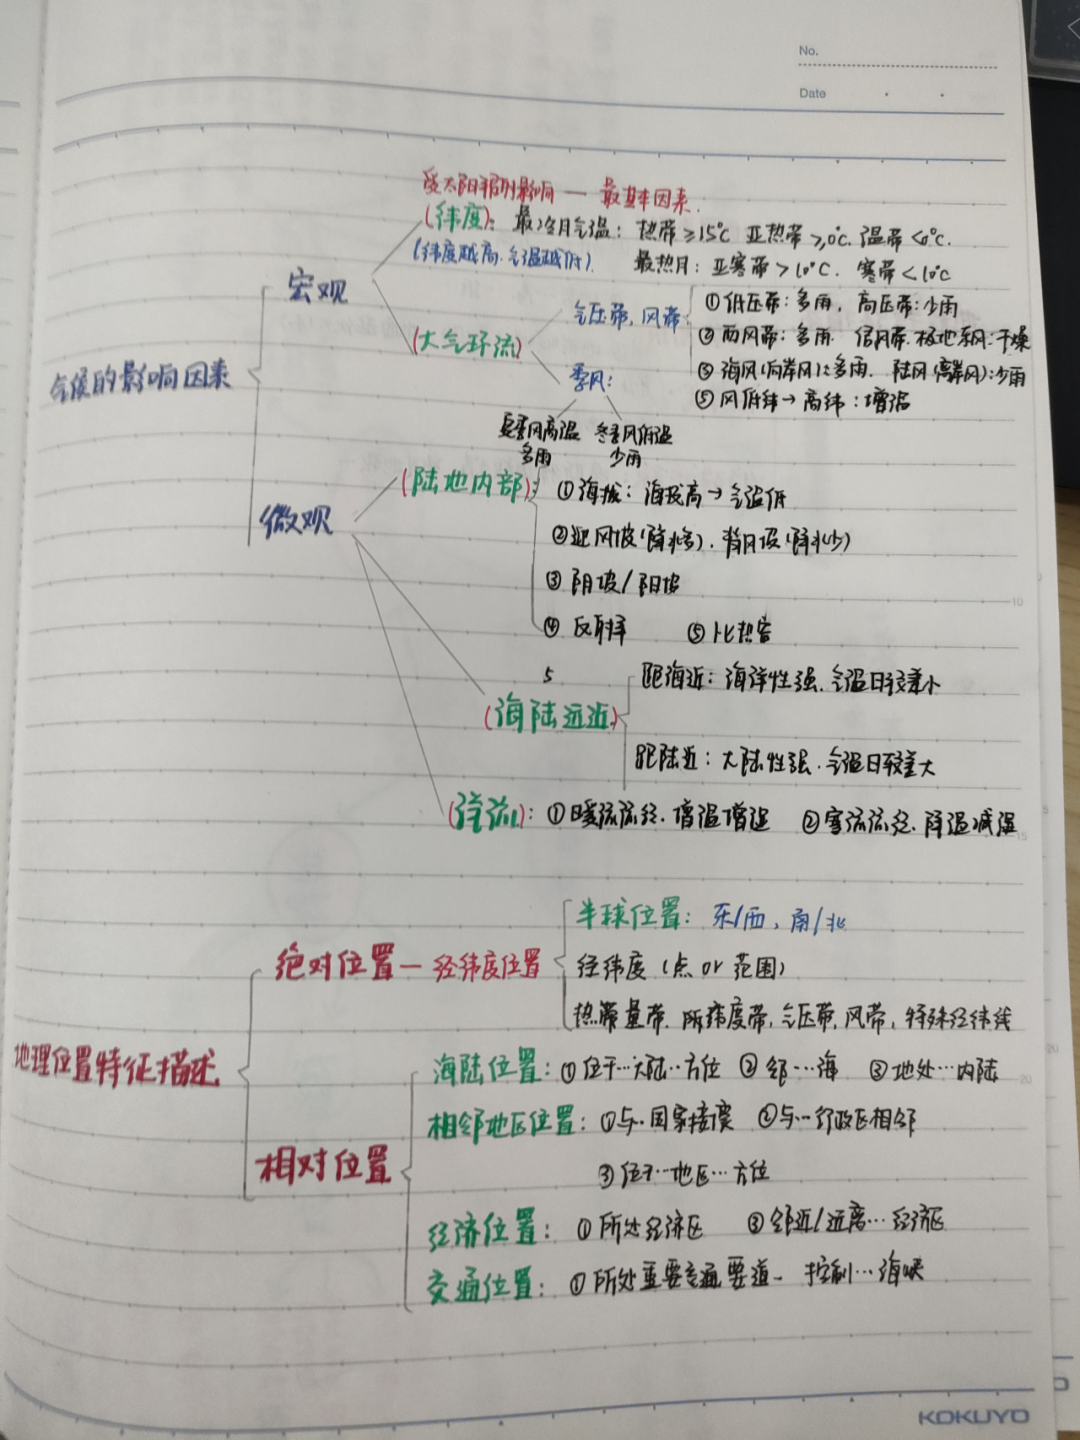 No.
Date
受太阳辐射影响 — 最基本因素.
(纬度): 最冷月气温: 热带≥15℃ 亚热带≥0℃. 温带<0℃.
(纬度越高.气温越低). 最热月: 亚寒带>10℃. 寒带<10℃
宏观
气压带,风带: ①低压带:多雨, 高压带:少雨
②西风带:多雨. 信风带.极地东风:干燥
(大气环流)
③海风(向岸风):多雨. 陆风(离岸风):少雨
季风:
气候的影响因素
⑤风低纬→高纬:增温
夏季风高温多雨 冬季风低温少雨
(陆地内部): ①海拔: 海拔高→气温低
微观
②迎风坡(降水多). 背风坡(降水少)
③阴坡/阳坡
④反射率 ⑤比热容
5
距海近: 海洋性强.气温日较差小
(海陆远近)
距陆近: 大陆性强.气温日较差大
(洋流): ①暖流流经.增温增湿 ②寒流流经.降温减湿
半球位置: 东/西, 南/北
绝对位置 — 经纬度位置
经纬度 (点 or 范围)
热量带. 所纬度带,气压带,风带,特殊经纬线
地理位置特征描述
海陆位置: ①位于…大陆…方位 ②邻…海 ③地处…内陆
相邻地区位置: ①与..国家接壤 ②与…行政区相邻
相对位置
③位于…地区…方位
经济位置: ①所处经济区 ②邻近/远离…经济区
交通位置: ①所处重要交通要道 - 控制…海峡
KOKUYO